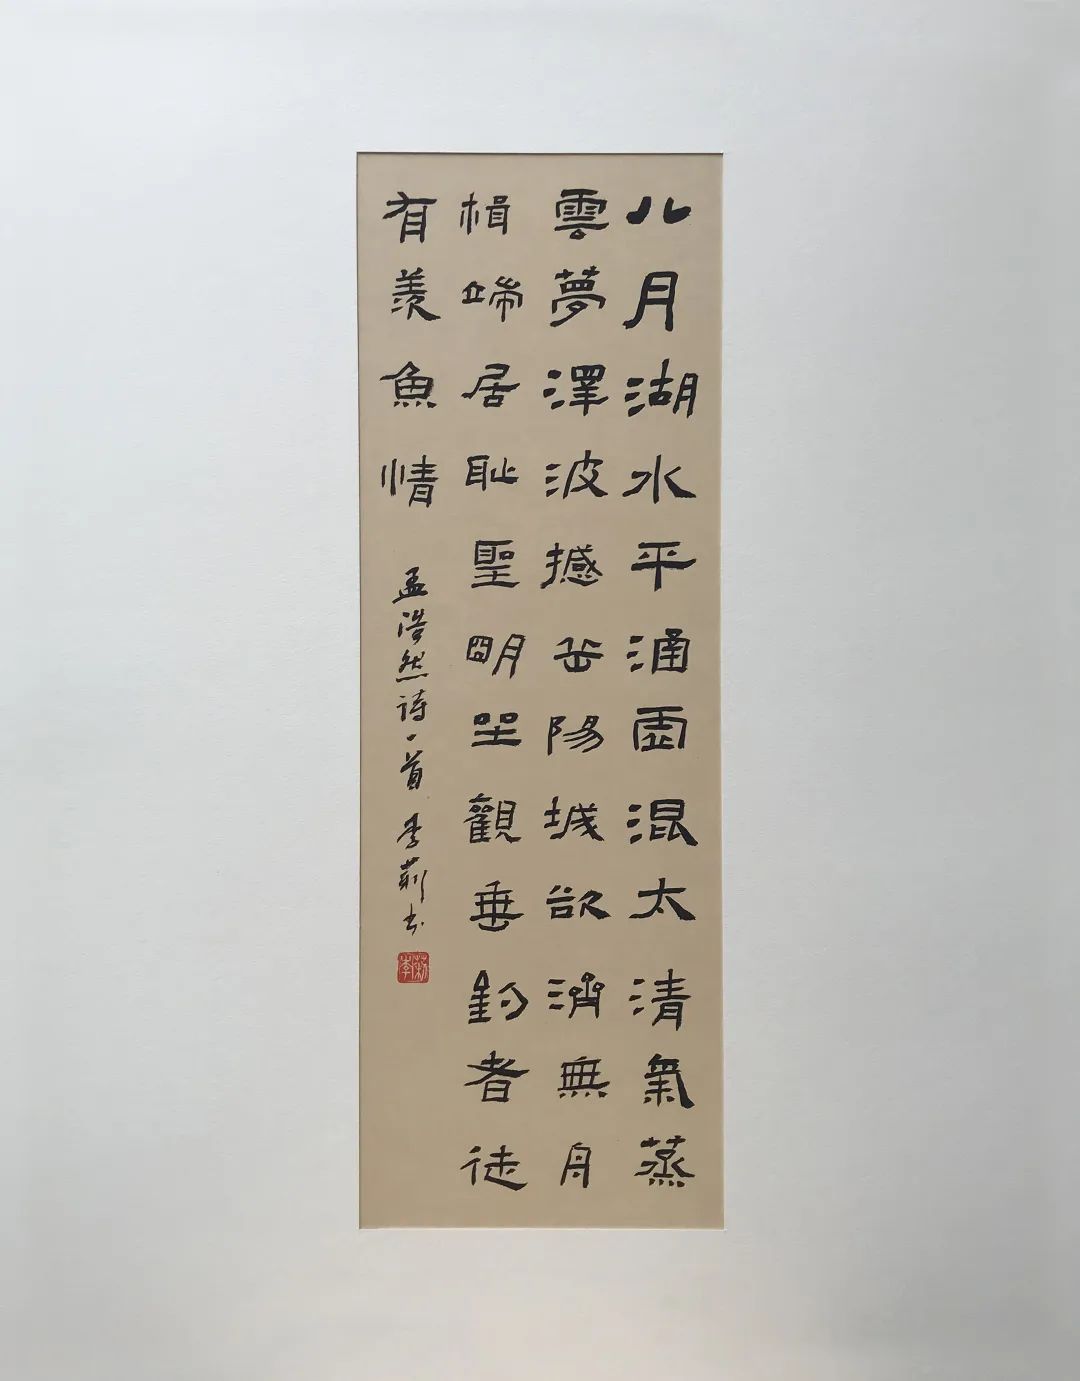 八月湖水平涵虛混太清氣蒸
雲夢澤波撼岳陽城欲濟無舟
楫端居恥聖明坐觀垂釣者徒
有羡魚情
孟浩然诗一首 李莉书